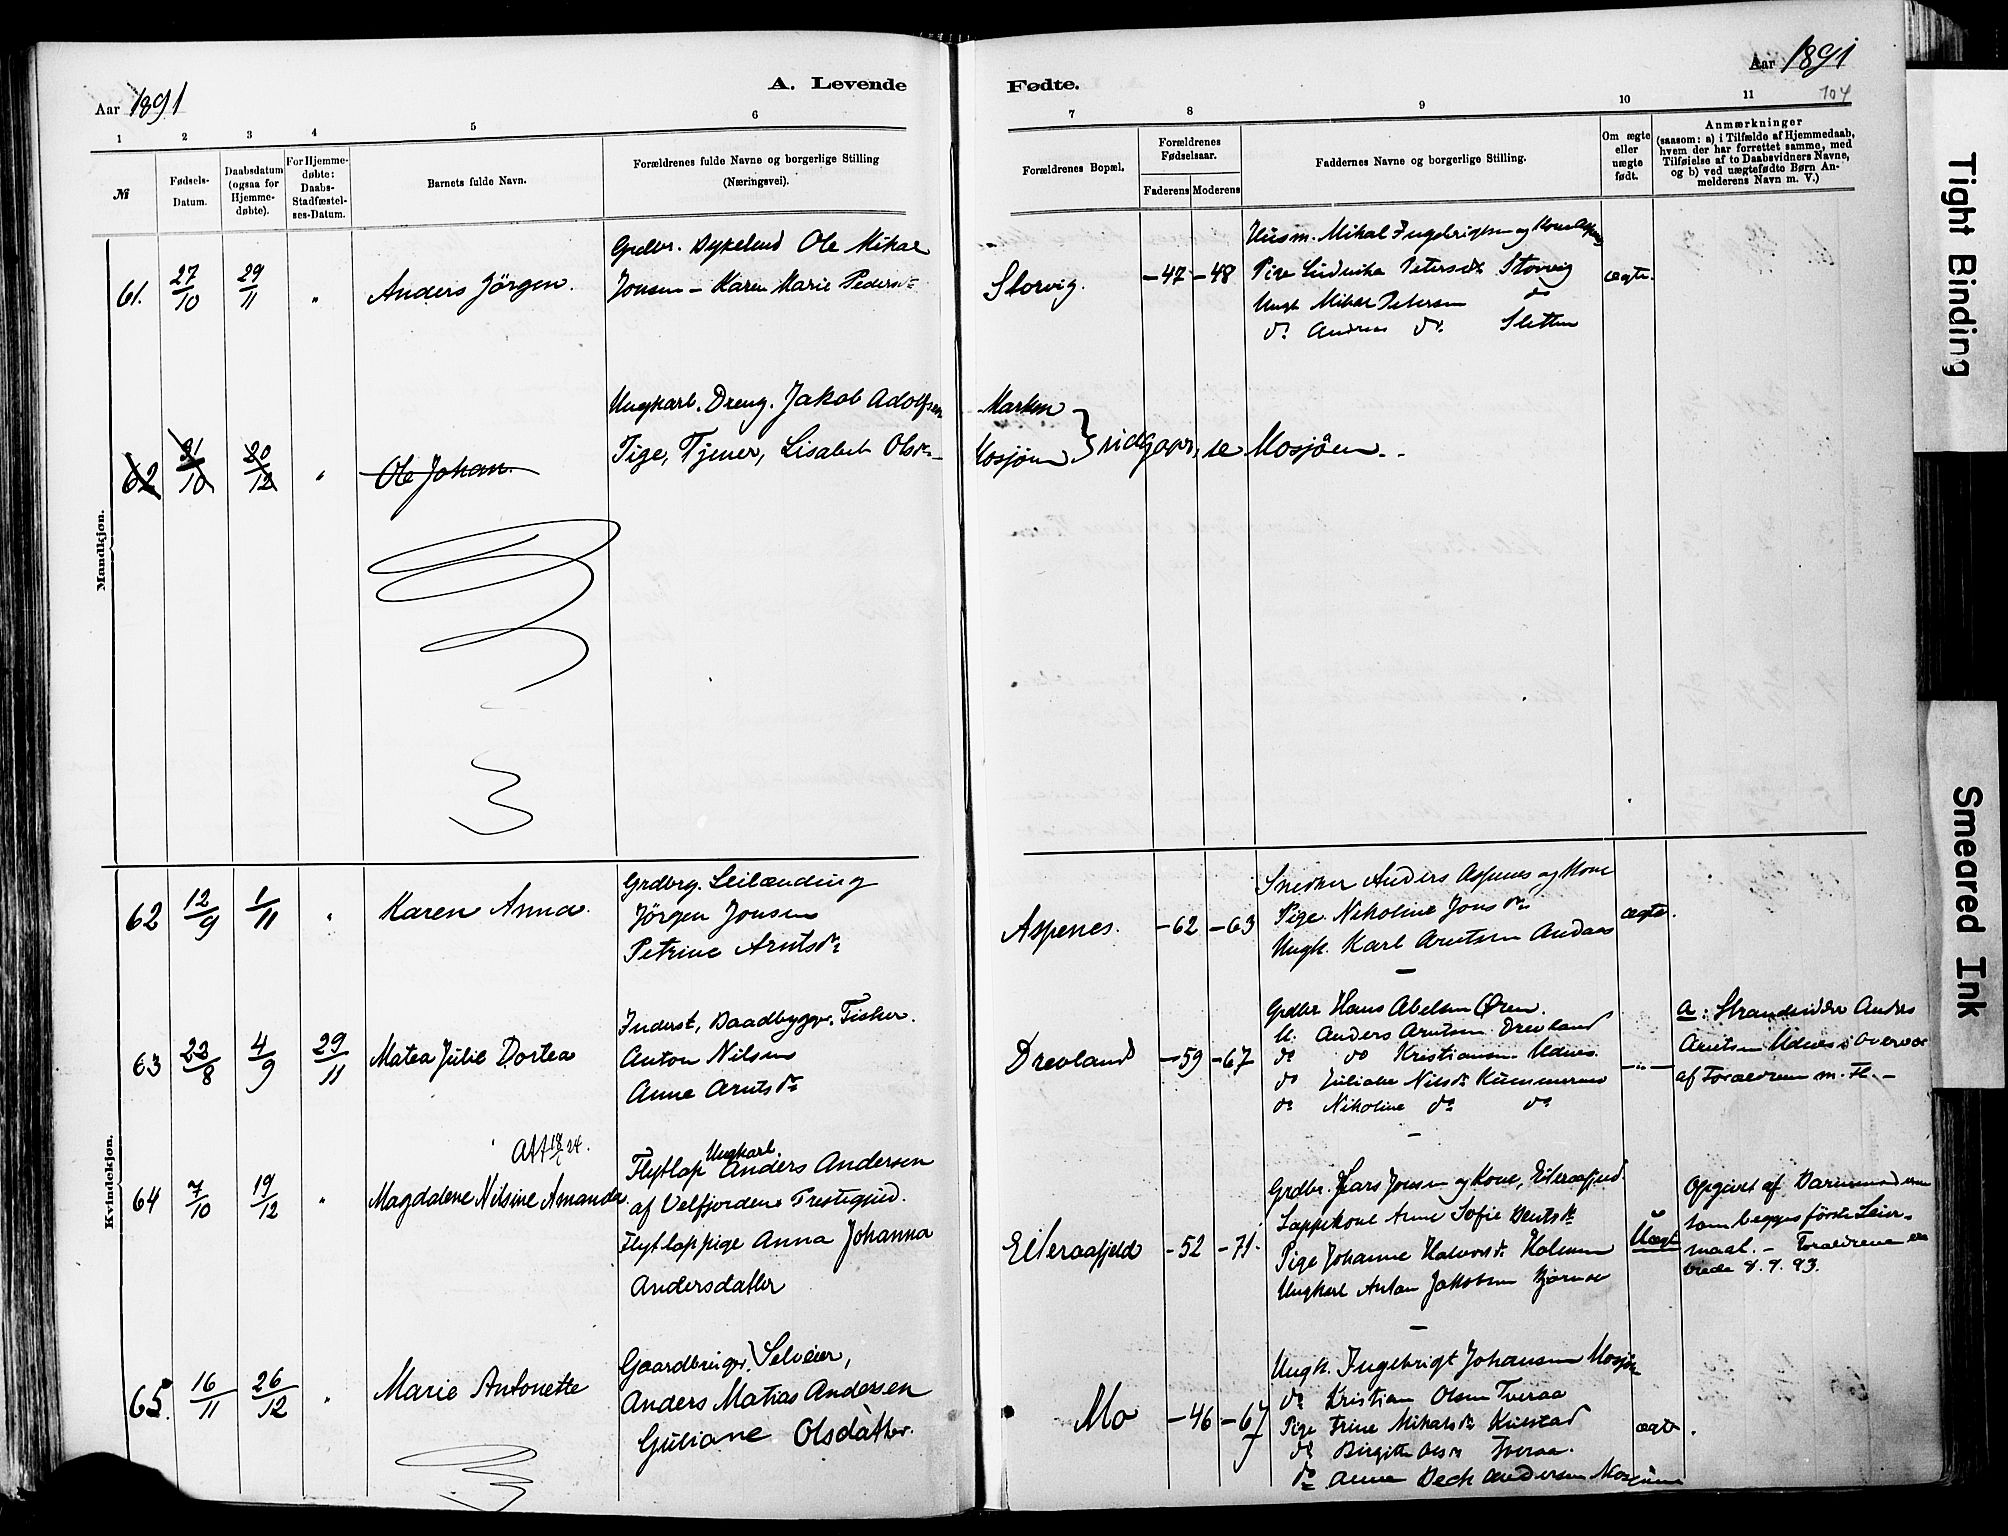 Aar 1891
A. Levende
1 2 3 4 5 6
№
Fødsels-Datum.
Daabsdatum (ogsaa for Hjemme-døbte).
For Hjemme-døbte: Daabs-Stadfæstel-ses-Datum.
Barnets fulde Navn.
Forældrenes fulde Navne og borgerlige Stilling
(Næringsvei).
Mandkjøn.
61. 27/10 29/11 " Anders Jörgen.
Grdbr. Ole Mikal
Jonsen – Karen Marie Pedersdr
62 21/10 20/12 " Ole Johan.
Ungkarl. Dreng. Jakob Adolfsen
Pige, Tjener, Lisabet Olsdr
Kvindekjøn.
62 12/9 1/11 " Karen Anna.
Grdbrg. Leilænding
Jörgen Jonsen
Petrine Arntsdr
63 22/8 4/9 29/11 Matea Julie Dortea
Inderst, Baadbygger, Fisker.
Anton Nilsen
Anne Arntsdr
Att 24.
64 7/10 19/12 " Magdalene Nilsine Amanda
Ungkarl.
Flytlap Anders Andersen
af Velfjordens Prestegjeld.
Flytlappige Anna Johanna
Andersdatter
65. 16/11 26/12 " Marie Antonette
Gaardbruger, Selveier,
Anders Matias Andersen
Guliane Olsdatter.
Fødte.
Aar 1891
104
7 8 9 10 11
Forældrenes Bopæl.
Forældrenes Fødselsaar.
Faderens Moderens
Faddernes Navne og borgerlige Stilling.
Om ægte eller uægte født.
Anmærkninger
(saasom: a) i Tilfælde af Hjemmedaab,
hvem der har forrettet samme, med
Tilføielse af to Daabsvidners Navne,
og b) ved uægtefødte Børn An-
melderens Navn m. V.)
Storvig. –47 –48
Husm. Mikal Ingebrigtsen og Kone
Pige Ludvika Petersdr Storvig
Ungk Mikal Petersen do
do Andreas do Sletten
ægte.
Marken
Mosjøen } udgaar, se Mosjöen.
Aspenes. –62 –63
Snedker Anders Aspenes og Kone
Pige. Nikoline Jonsdr
Ungk. Karl Arntsen Andaas
ægte.
Drevland –59 –67
Grdbr Hans Abelsen Øren.
U. Anders Arntsen Drevland
do do Kristiansen Udnes.
do Nilsdr
do Nikoline do do
–"–
a: Strandsidder Andrs
Arntsen Udnes i Overvær
af Forældrene m. Fl.
Eiteraafjeld –52 –71.
Grdbr. Lars Jonsen og Kone, Eiteraafjeld.
Lappekone Anne Sofie Bentsdr
Pige Johanne Halvorsdr Holmen
Ungkarl Anton Jakobsen
Uægte
Opgivet af Barnemoderen
som begges förste Leier-
maal. – Forældrene
viede 8.7.93.
Mo –46 –67
Ungk. Ingebrigt Johansen Mosjøen
do Kristian Olsen Tveraa
Pige Trine Mikalsdr Kulstad
do Birgitte Olsdr Tveraa.
do Anna Beck Andersen Mosjöen
ægte.
Tight Binding
Smeared Ink